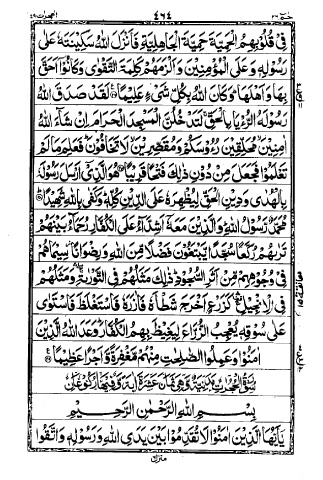 حٰمٓ ٢٦ ٤٦٤ الحجرات ٤٩
فِيْ قُلُوْبِهِمُ الْحَمِيَّةَ حَمِيَّةَ الْجَاهِلِيَّةِ فَاَنْزَلَ اللّٰهُ سَكِيْنَتَهٗ عَلٰى
رَسُوْلِهٖ وَعَلَى الْمُؤْمِنِيْنَ وَاَلْزَمَهُمْ كَلِمَةَ التَّقْوٰى وَكَانُوْٓا اَحَقَّ
بِهَا وَاَهْلَهَا ؕ وَكَانَ اللّٰهُ بِكُلِّ شَيْءٍ عَلِيْمًا لَقَدْ صَدَقَ اللّٰهُ
رَسُوْلَهُ الرُّءْيَا بِالْحَقِّ ۚ لَتَدْخُلُنَّ الْمَسْجِدَ الْحَرَامَ اِنْ شَآءَ اللّٰهُ
اٰمِنِيْنَ ۙ مُحَلِّقِيْنَ رُءُوْسَكُمْ وَمُقَصِّرِيْنَ ۙ لَا تَخَافُوْنَ ؕ فَعَلِمَ مَا لَمْ
تَعْلَمُوْا فَجَعَلَ مِنْ دُوْنِ ذٰلِكَ فَتْحًا قَرِيْبًا هُوَ الَّذِيْٓ اَرْسَلَ رَسُوْلَهٗ
بِالْهُدٰى وَدِيْنِ الْحَقِّ لِيُظْهِرَهٗ عَلَى الدِّيْنِ كُلِّهٖ ؕ وَكَفٰى بِاللّٰهِ شَهِيْدًا
مُحَمَّدٌ رَّسُوْلُ اللّٰهِ ؕ وَالَّذِيْنَ مَعَهٗٓ اَشِدَّآءُ عَلَى الْكُفَّارِ رُحَمَآءُ بَيْنَهُمْ
تَرٰىهُمْ رُكَّعًا سُجَّدًا يَّبْتَغُوْنَ فَضْلًا مِّنَ اللّٰهِ وَرِضْوَانًا ۫ سِيْمَاهُمْ
فِيْ وُجُوْهِهِمْ مِّنْ اَثَرِ السُّجُوْدِ ؕ ذٰلِكَ مَثَلُهُمْ فِي التَّوْرٰىةِ ۛ وَمَثَلُهُمْ
فِي الْاِنْجِيْلِ ۛ كَزَرْعٍ اَخْرَجَ شَطْـَٔهٗ فَاٰزَرَهٗ فَاسْتَغْلَظَ فَاسْتَوٰى
عَلٰى سُوْقِهٖ يُعْجِبُ الزُّرَّاعَ لِيَغِيْظَ بِهِمُ الْكُفَّارَ ؕ وَعَدَ اللّٰهُ الَّذِيْنَ
اٰمَنُوْا وَعَمِلُوا الصّٰلِحٰتِ مِنْهُمْ مَّغْفِرَةً وَّاَجْرًا عَظِيْمًا
بِسْمِ اللّٰهِ الرَّحْمٰنِ الرَّحِيْمِ
يٰٓاَيُّهَا الَّذِيْنَ اٰمَنُوْا لَا تُقَدِّمُوْا بَيْنَ يَدَيِ اللّٰهِ وَرَسُوْلِهٖ وَاتَّقُوا
منزل